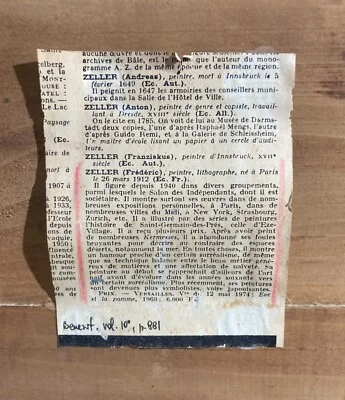 aucune œuvre et dont le
archives de Bâle, est que l'auteur du mono-
gramme A. Z. de la même époque et de la même région.
ZELLER (Andreas), peintre, mort à Innsbruck le 5
février 1649 (Ec. Aut.)
Il peignit en 1647 les armoiries des conseillers muni-
cipaux dans la Salle de l'Hôtel de Ville.
ZELLER (Anton), peintre de genre et copiste, travail-
lant à Dresde, XVIIIe siècle (Ec. All.)
On le cite en 1785. On voit de lui au Musée de Darms-
tadt deux copies, l'une d'après Raphaël Mengs, l'autre
d'après Guido Reni, et à la Galerie de Schleissheim,
Un maître d'école lisant un papier à un cercle d'audi-
teurs.
ZELLER (Franziskus), peintre d'Innsbruck, XVIIe
siècle (Ec. Aut.)
ZELLER (Frédéric), peintre, lithographe, né à Paris
le 26 mars 1912 (Ec. Fr.)
Il figure depuis 1940 dans divers groupements,
parmi lesquels le Salon des Indépendants, dont il est
sociétaire. Il montre surtout ses œuvres dans de nom-
breuses expositions personnelles, à Paris, dans de
nombreuses villes du Midi, à New York, Strasbourg,
Zurich, etc. Il a illustré par des séries de peintures
l'histoire de Saint-Germain-des-Prés, celle d'Eze-
Village. Il a reçu plusieurs prix. Après avoir peint
de nombreuses Kermesses, il a abandonné ses foules
bruyantes pour décrire au contraire des espaces
déserts, notamment la mer. En toutes choses, il montre
un humour proche d'un certain surréalisme, de même
que sa technique balance entre le beau métier géné-
reux de matières et une affectation de naïveté. Sa
peinture au début se rapprochait d'ailleurs de l'art
naïf avant d'évoluer dans les années soixante vers
un certain surréalisme. Plus récemment, ses peintures
sont devenues plus symbolistes, voire japonisantes.
PRIX. — VERSAILLES, Vte du 12 mai 1974: Eve
et la pomme, 1969: 6.000 F.
Benezit. vol. 10, p. 881
elberg,
et la
MONT-
OUSE :
ATEL :
IONS. —
Le Lac
Paysage
(Ec.
1907 à
1926,
1933,
1950 :